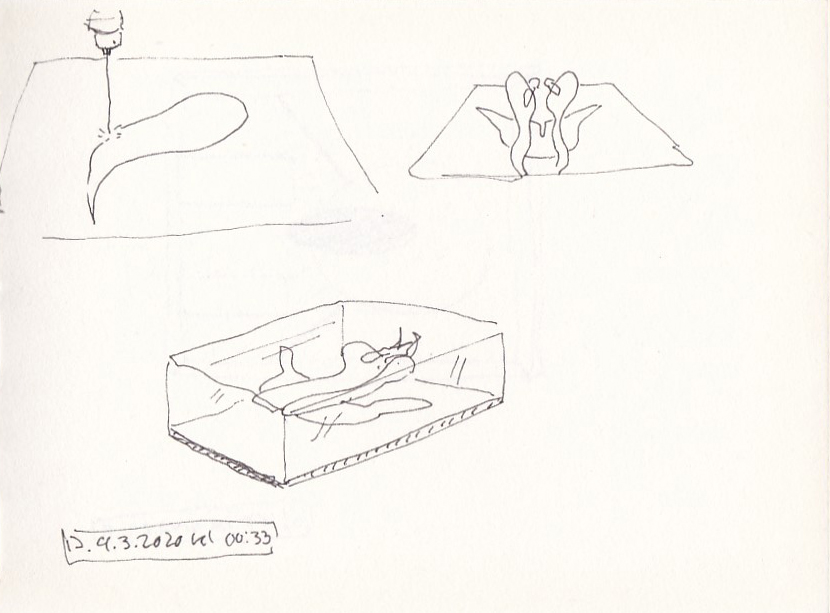 D. 9.3.2020 kl 00:33